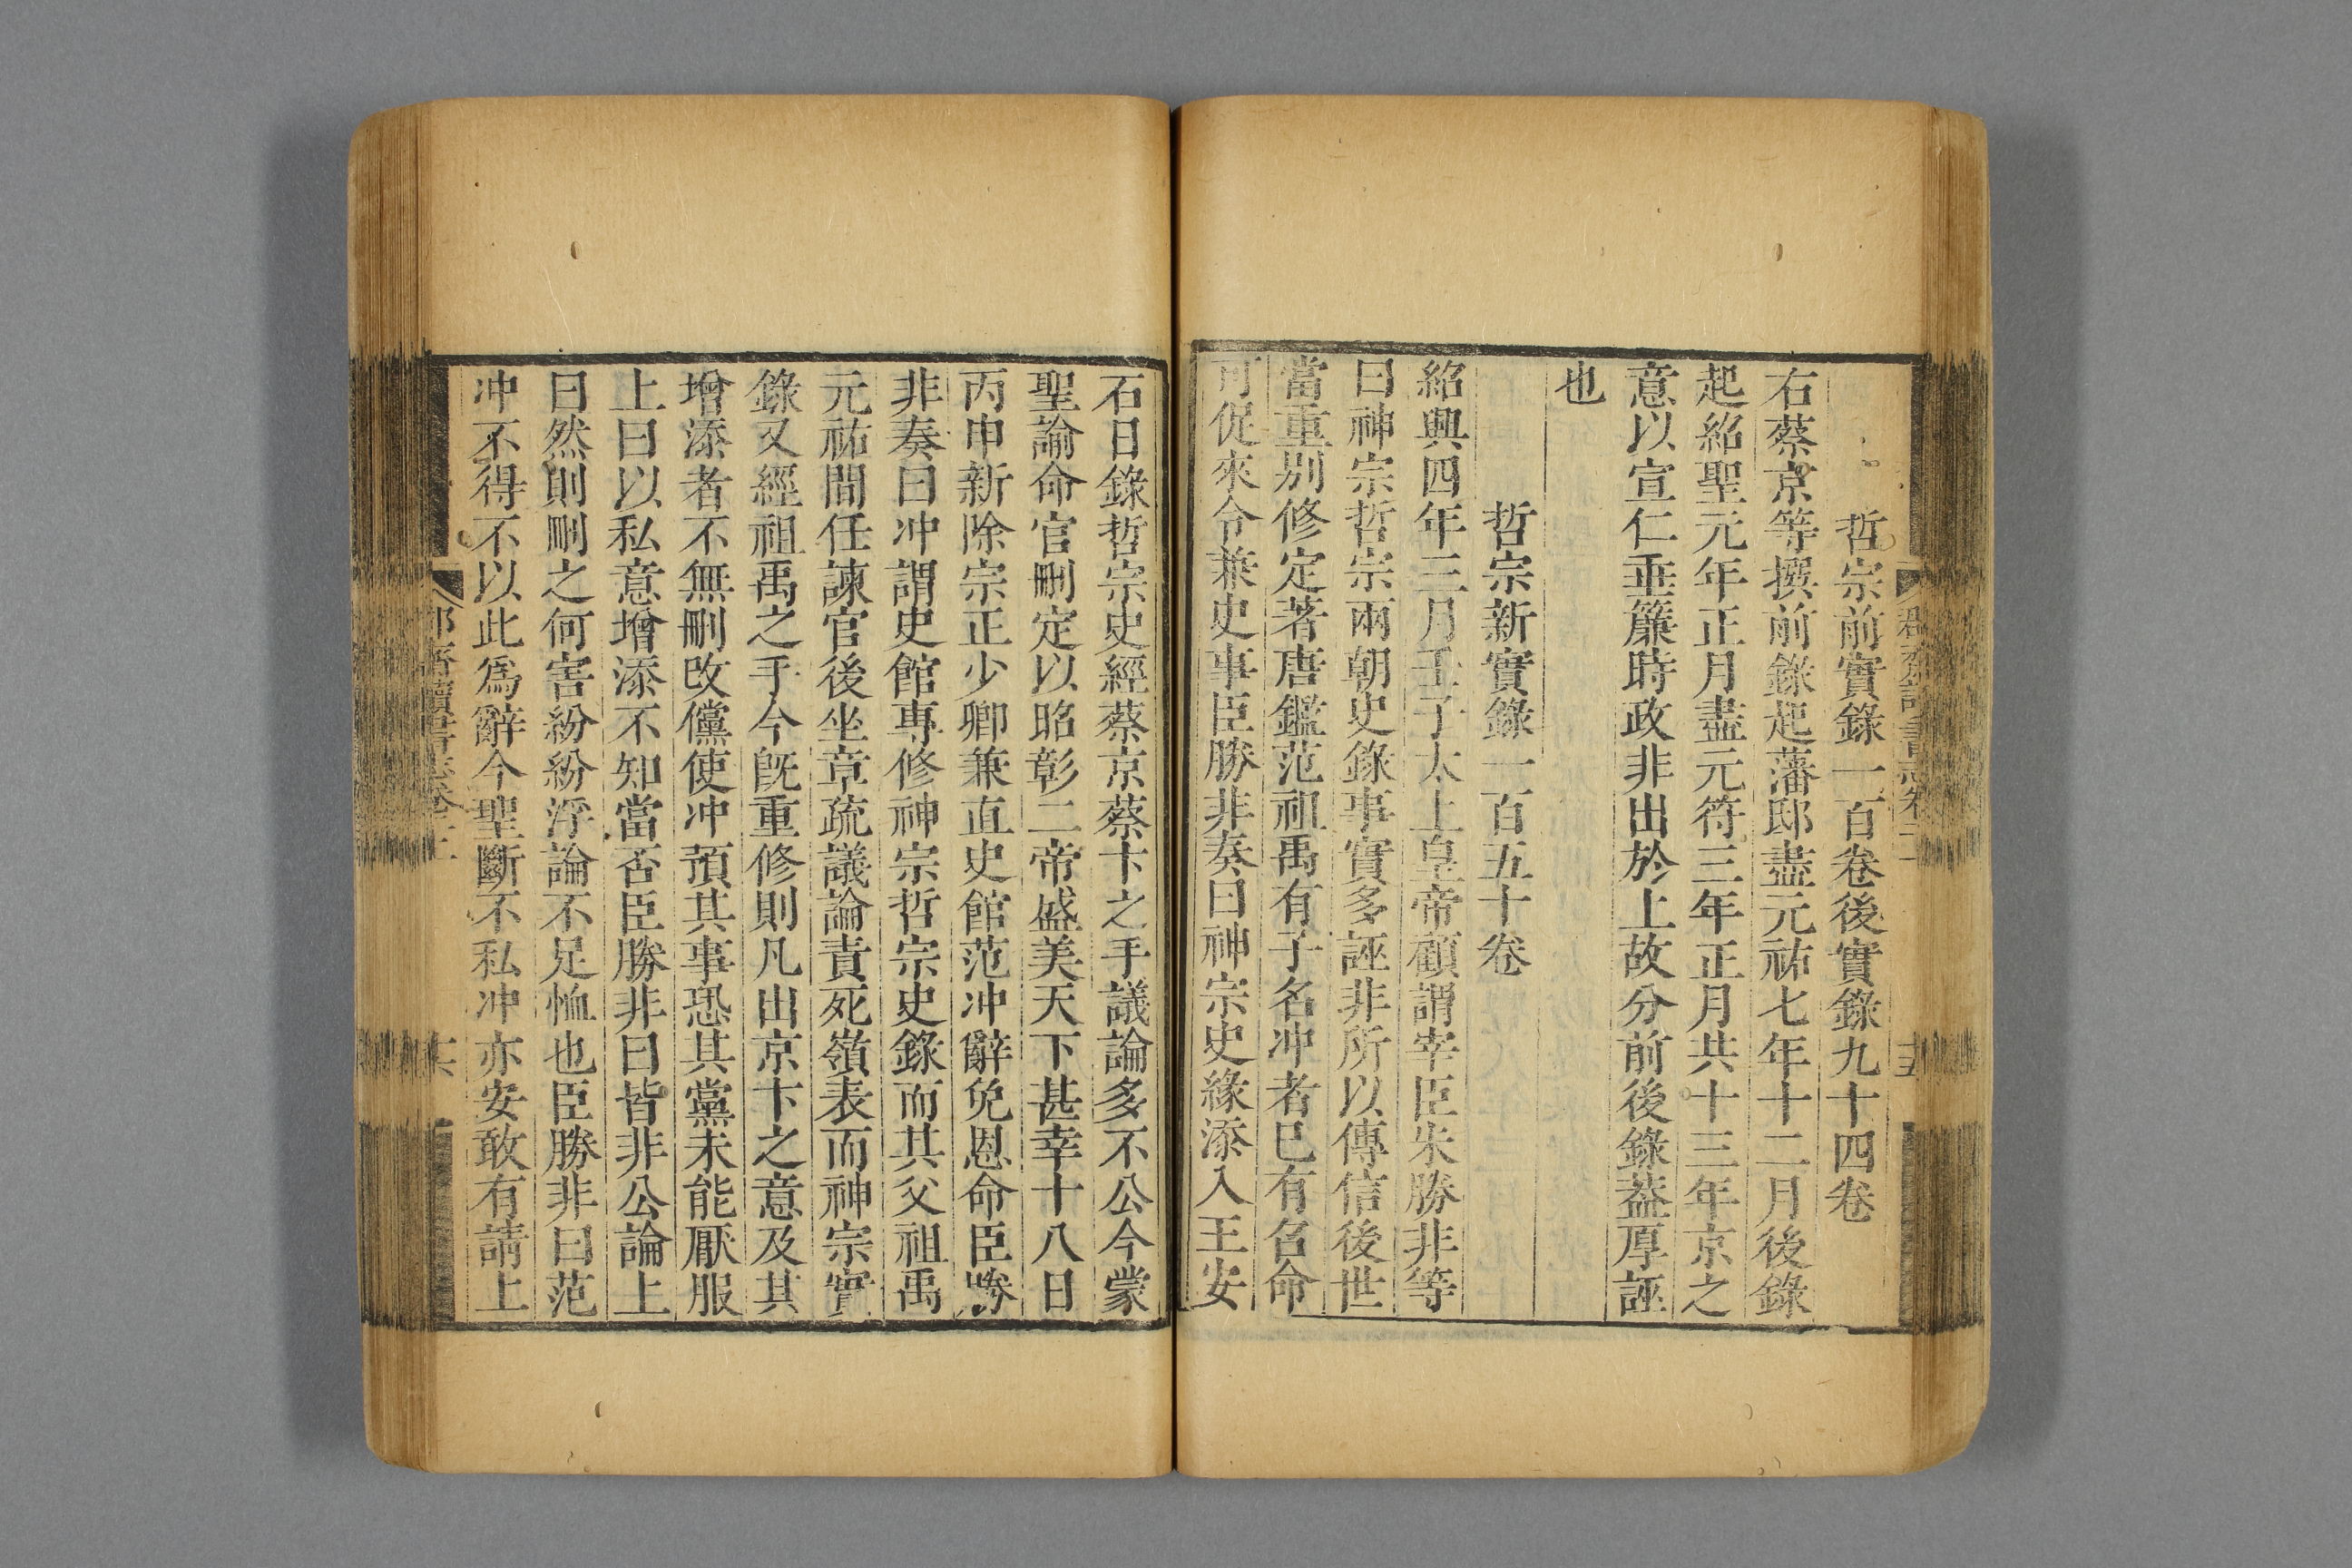 哲宗前實錄一百卷後實錄九十四卷
右蔡京等撰前錄起藩邸盡元祐七年十二月後錄
起紹聖元年正月盡元符三年正月共十三年京之
意以宣仁垂簾時政非出於上故分前後錄葢厚誣
也
哲宗新實錄一百五十卷
紹興四年三月壬子太上皇帝顧謂宰臣朱勝非等
曰神宗哲宗兩朝史錄事實多誣非所以傳信後世
當重別修定著唐鑑范祖禹有子名冲者已有召命
可促來令兼史事臣勝非奏曰神宗史緣添入王安
石日錄哲宗史經蔡京蔡卞之手議論多不公今蒙
聖諭命官刪定以昭彰二帝盛美天下甚幸十八日
丙申新除宗正少卿兼直史館范冲辭免恩命臣勝
非奏曰冲謂史館專修神宗哲宗史錄而其父祖禹
元祐間任諫官後坐章疏議論責死嶺表而神宗實
錄又經祖禹之手今旣重修則凡出京卞之意及其
增添者不無刪改儻使冲預其事恐其黨未能厭服
上曰以私意增添不知當否臣勝非曰皆非公論上
曰然則刪之何害紛紛浮論不足恤也臣勝非曰范
冲不得不以此爲辭今聖斷不私冲亦安敢有請上